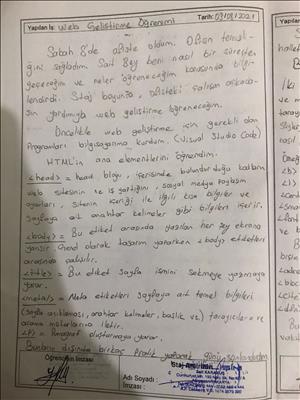 Yapılan İş: Web Geliştirme Öğrenimi Tarih: 09/08/2021
Sabah 8'de ofiste oldum. Ofisin temizli-
ğini sağladım. Sait Bey beni nasıl bir süreçten
geçeceğim ve neler öğreneceğim konusunda bilgi-
lendirdi. Staj boyunca ofisteki çalışan arkada-
şın yardımıyla web geliştirme öğreneceğim.
Öncelikle web geliştirme için gerekli olan
Programları bilgisayarıma kurdum. (Visual Studio Code)
HTML'in ana elementlerini öğrendim.
<head> = head bloğu içerisinde bulundurduğu kodların
web sitesinin ne iş yaptığını, sosyal medya paylaşım
ayarları, sitenin içeriği ile ilgili kısa bilgiler ve
Sayfaya ait anahtar kelimeler gibi bilgileri içerir.
<body> = Bu etiket arasında yazılan her şey ekrana
yansır. Genel olarak tasarım yaparken <body> etiketleri
arasında çalışılır.
<title> = Bu etiket sayfa ismini sekmeye yazmaya
yarar.
<meta/> = Meta etiketleri Sayfaya ait temel bilgileri
(Sayfa açıklaması, anahtar kelimeler, başlık vs.) tarayıcılara ve
arama motorlarına iletir.
<P> = Paragraf oluşturmaya yarar.
Bunların dışında birkaç pratik yaparak günü sonlandırdım.
Öğrencinin İmzası
Adı Soyadı :
İmzası :